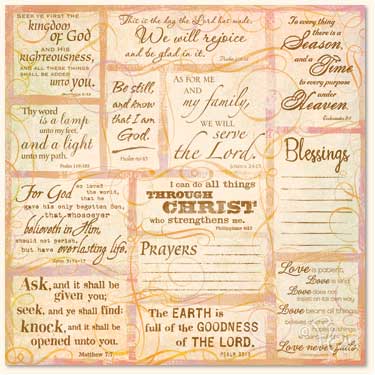 SEEK YE FIRST THE
kingdom
OF GOD
AND HIS
righteousness,
AND ALL THESE THINGS
SHALL BE ADDED
unto YOU.
This is the day the Lord hath made.
We will rejoice
and be glad in it.
To every thing
there is a
Season,
and a
Time
to every purpose
under
Heaven.
Ecclesiastes 3:1
Thy word
is a lamp
unto my feet,
and a light
unto my path.
Be still,
and know
that I am
God.
Psalm 46:10
AS FOR ME
AND
my family,
WE WILL
serve
the Lord.
Joshua 24:15
Blessings
For God so loved
the world,
that he
gave his only begotten Son,
that whosoever
believeth in Him,
should not perish,
but have everlasting life.
John 3:16
I can do all things
THROUGH
CHRIST
who strengthens me.
Philippians 4:13
Prayers
Ask, and it shall be
given you;
seek, and ye shall find;
knock, and it shall be
opened unto you.
Matthew 7:7
The EARTH is
full of the GOODNESS
OF THE LORD.
PSALM 33:5
Love is patient,
Love is kind.
Love does not
insist on its own way.
Love bears all things,
believes all things,
hopes all things,